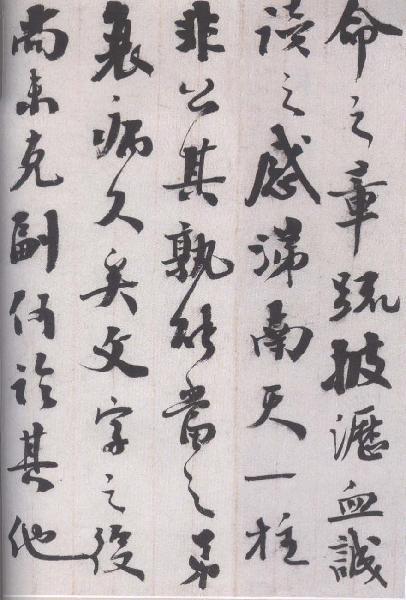 命之章疏披瀝血誠
讀之感涕南天一柱
非公其孰能當之弟
衰病久矣文字之役
尚未克副何論其他